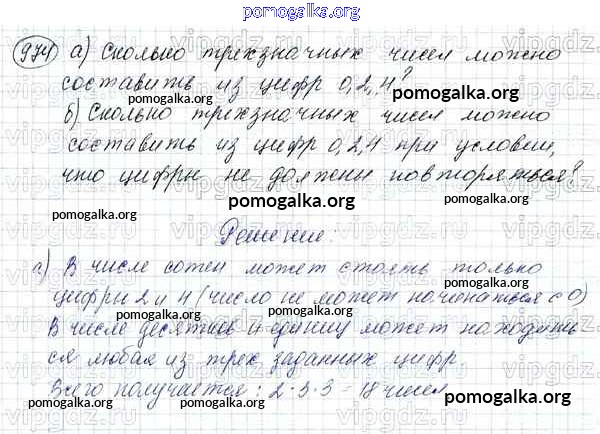 pomogalka.org
974 а) Сколько трехзначных чисел можно
составить из цифр 0,2,4?
pomogalka.org pomogalka.org
б) Сколько трехзначных чисел можно
составить из цифр 0,2,4 при условии,
что цифры не должны повторяться?
pomogalka.org pomogalka.org
Решение.
а) В числе сотен может стоять только
цифры 2 и 4 (число не может начинаться с 0)
В числе десятков и единиц может находить
ся любая из трех заданных цифр
Всего получается: 2·3·3 = 18 чисел.
pomogalka.org pomogalka.org